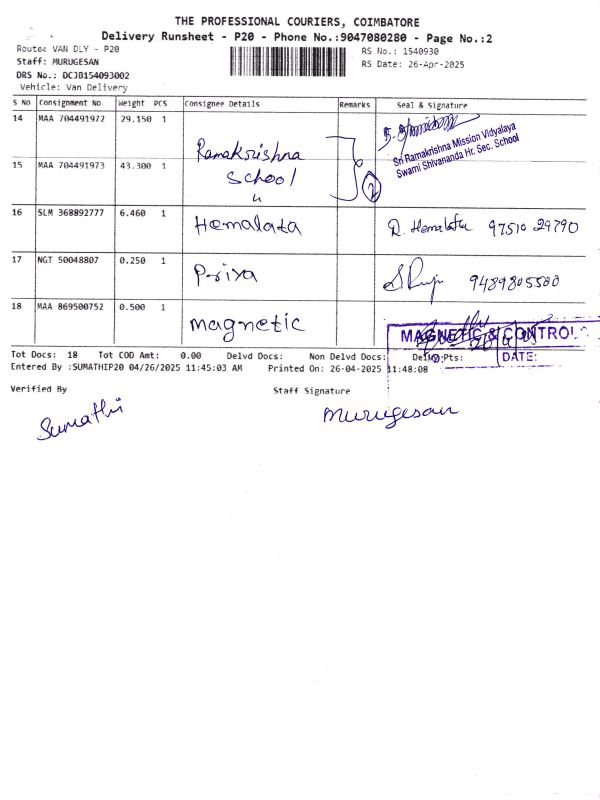 THE PROFESSIONAL COURIERS, COIMBATORE
Delivery Runsheet - P20 - Phone No.:9047080280 - Page No.:2
Route: VAN DLY - P20
RS No.: 1540930
Staff: MURUGESAN
RS Date: 26-Apr-2025
DRS No.: DCJB154093002
Vehicle: Van Delivery
S No Consignment No Weight PCS Consignee Details Remarks Seal & Signature
14 MAA 704491972 29.150 1
Ramakrishna
School
Sri Ramakrishna Mission Vidyalaya
Swami Shivananda Hr. Sec. School
15 MAA 704491973 43.300 1 " 2
16 SLM 368892777 6.460 1 Hemalata R. Hemalatha 97510 29790
17 NGT 50048807 0.250 1 Priya 9489805500
18 MAA 869500752 0.500 1 magnetic
MAGNETIC & CONTROL
DATE:
Tot Docs: 18 Tot COD Amt: 0.00 Delvd Docs: Non Delvd Docs: Pts:
Entered By :SUMATHIP20 04/26/2025 11:45:03 AM Printed On: 26-04-2025 11:48:08
Verified By Staff Signature
Sumathi Murugesan